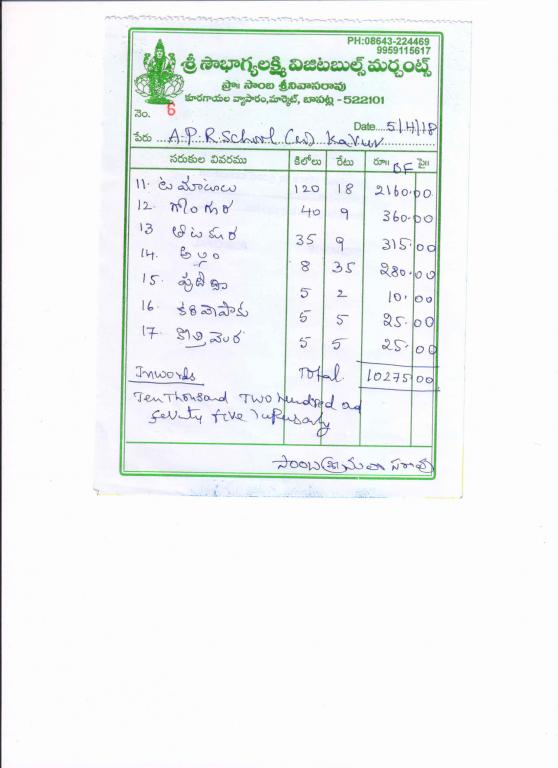 PH:08643-224469
9959115617
శ్రీ సౌభాగ్యలక్ష్మి విజిటబుల్స్ మర్చంట్స్
ప్రొః సాంబ శ్రీనివాసరావు
కూరగాయల వ్యాపారం,మార్కెట్, బాపట్ల -522101
నెం. 6
Date....5/4/18
పేరు ....A.P.R.School (
సరుకుల వివరము కిలోలు రేటు రూ॥ పై॥
BF
11. టమాటాలు 120 18 2160.00
12. గోంగూర 40 9 360.00
13 తోటకూర 35 9 315.00
14. అల్లం 8 35 280.00
15. పుదీనా 5 2 10.00
16. కరివేపాకు 5 5 25.00
17. కొత్తిమెర 5 5 25.00
Inwords Total 10275 00
Ten Thousand Two hundred and
Seventy five only